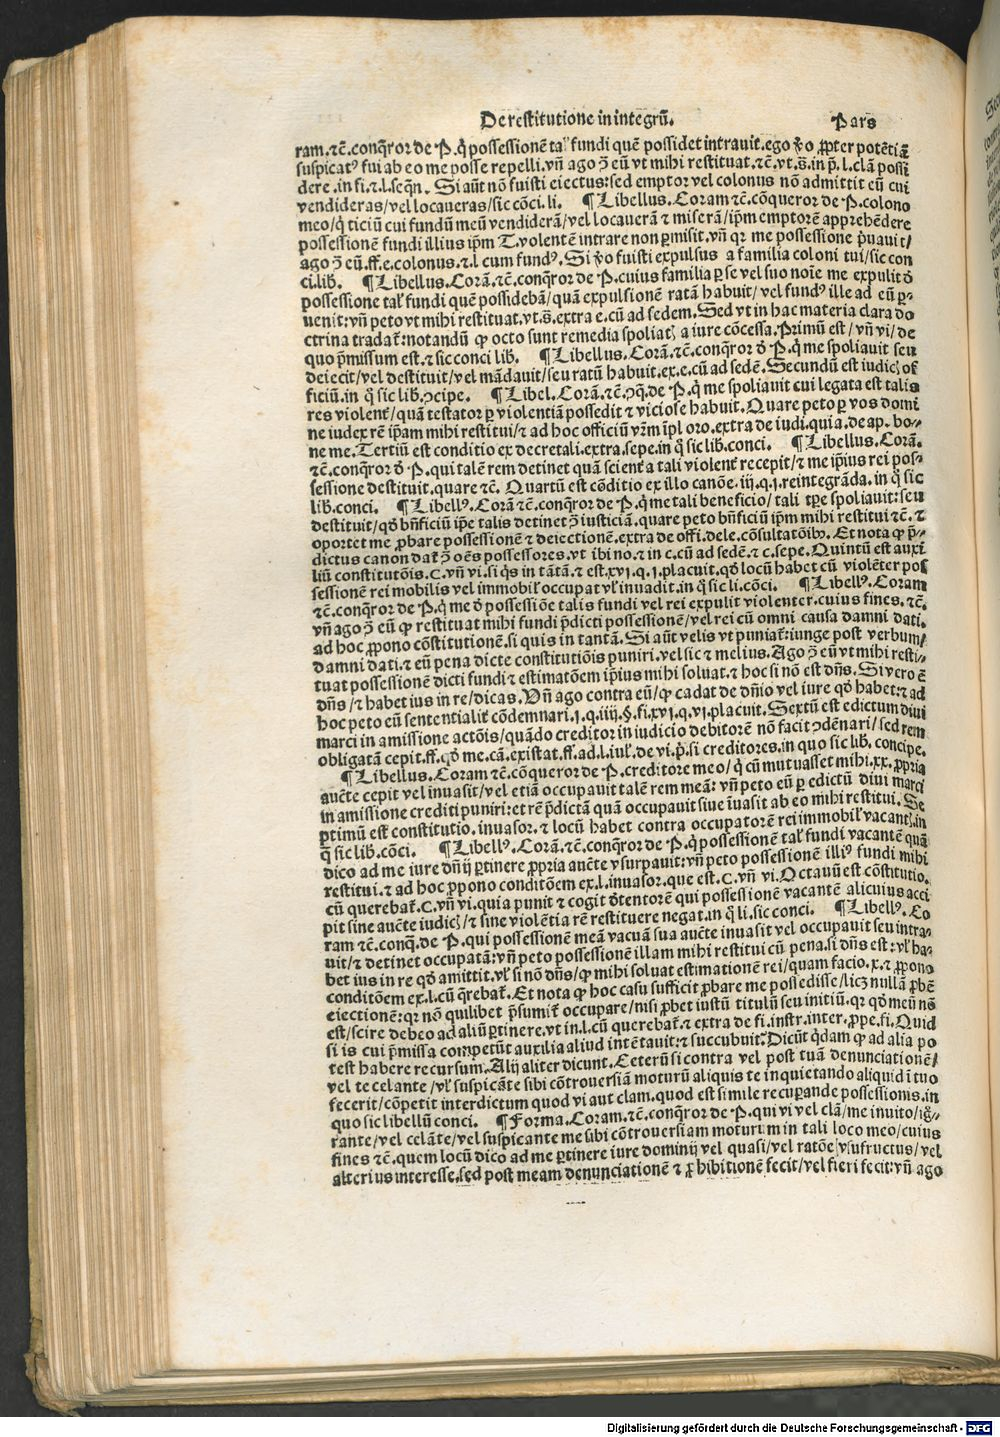 De restitutione in integrū. Pars
ram. ⁊c̄. conq̄ror de P. q̇ possessionē tal' fundi quē possidet intrauit. ego ꝟo ꝓpter potētiā
suspicatꝰ fui ab eo me posse repelli. vn̄ ago ꝯ̄ eū vt mihi restituat. ⁊c̄. vt. s̄. in p̄. l. clā possi
dere. in fi. ⁊. l. seqn̄. Si aūt nō fuisti eiectus: sed emptor vel colonus nō admittit eū cui
vendideras/ vel locaueras/ sic cōci. li. ¶ Libellus. Coram ⁊c̄. cōqueror de P. colono
meo/ q̇ ticiū cui fundū meū vendiderā/ vel locauerā ⁊ miserā/ ip̄m emptorē apprehēdere
possessionē fundi illius ip̄m T. violentē intrare non ꝑmisit. vn̄ qꝛ me possessione p̄uauit/
ago ꝯ̄ eū. ff. e. colonus. ⁊. l cum fundꝰ. Si ꝟo fuisti expulsus a familia coloni tui/ sic con
ci. lib. ¶ Libellus. Corā. ⁊c̄. conq̄ror de P. cuius familia ꝑ se vel suo noīe me expulit ð
possessione tal' fundi quē possidebā/ quā expulsionē ratā habuit/ vel fundꝰ ille ad eū ꝑ-
uenit: vn̄ peto vt mihi restituat. vt. s̄. extra e. cū ad sedem. Sed vt in hac materia clara do
ctrina tradat̄: notandū ꝙ octo sunt remedia spoliatꝭ a iure cōcessa. Primū est/ vn̄ vi/ de
quo p̄missum est. ⁊ sic conci lib. ¶ Libellus. Corā. ⁊c̄. conq̄ror ð P. q̇ me spoliauit seu
deiecit/ vel destituit/ vel mādauit/ seu ratū habuit. ex. e. cū ad sedē. Secundū est iudicꝭ of
ficiū. in q̇ sic lib. ꝯcipe. ¶ Libel. Corā. ⁊c̄. ꝯq̄. de P. q̇ me spoliauit cui legata est talis
res violent̄/ quā testator ꝑ violentiā possedit ⁊ viciose habuit. Quare peto ꝑ vos domi
ne iudex rē ip̄am mihi restitui/ ⁊ ad hoc officiū vr̄m īpl oro. extra de iudi. qui a. de ap. bo-
ne me. Tertiū est conditio ex decretali. extra. sepe. in q̇ sic lib. conci. ¶ Libellus. Corā.
⁊c̄. conq̄ror ð P. qui talē rem detinet quā scient̄ a tali violent̄ recepit/ ⁊ me ip̄ius rei pos-
sessione destituit. quare ⁊c̄. Quartū est cōditio ex illo canōe. iij. q. j. reintegrāda. in q̇ sic
lib. conci. ¶ Libellꝰ. Corā ⁊c̄. conq̄ror de P. q̇ me tali beneficio/ tali tꝑe spoliauit: seu
destituit/ qð bn̄ficiū ip̄e talis detinet ꝯ̄ iusticiā. quare peto bn̄ficiū ip̄m mihi restitui ⁊c̄. ⁊
oportet me ꝓbare possessionē ⁊ deiectionē. extra de offi. dele. cōsultatōibꝰ. Et nota ꝙ p̄-
dictus canon dat̄ ꝯ̄ oēs possessores. vt ibi no. ⁊ in c. cū ad sedē ⁊ c. sepe. Quintū est auxi
liū constitutōis. C. vn̄ vi. si q̇s in tātā. ⁊ est. xvj. q. j. placuit. qð locū habet cū violēter pos
sessionē rei mobilis vel immobil' occupat vl' inuadit. in q̇ sic li. cōci. ¶ Libellꝰ. Coram
⁊c̄. conq̄ror de P. q̇ me ð possessiōe talis fundi vel rei expulit violenter. cuius fines. ⁊c̄.
vn̄ ago ꝯ̄ eū ꝙ restituat mihi fundi p̄dicti possessionē/ vel rei cū omni causa damni dati.
ad hoc ꝓpono cōstitutionē. si quis in tantā. Si aūt velis vt puniat̄: iunge post verbum/
damni dati. ⁊ eū pena dicte constitutiōis puniri. vel sic ⁊ melius. Ago ꝯ̄ eū vt mihi resti-
tuat possessionē dicti fundi ⁊ estimatōem ip̄ius mihi soluat. ⁊ hoc si nō est dn̄s. Si vero ē
dn̄s/ ⁊ habet ius in re/ dicas. Vn̄ ago contra eū/ ꝙ cadat de dn̄io vel iure qð habet: ⁊ ad
hoc peto eū sententialit̄ cōdemnari. j. q. iiij. §. fi. xvj. q. vj. placuit. Sextū est edictum diui
marci in amissione actōis/ quādo creditor in iudicio debitorē nō facit ꝯdēnari/ sed rem
obligatā cepit. ff. qð me. cā. existat. ff. ad. l. iul'. de vi. p̄. si creditores. in quo sic lib. concipe.
¶ Libellus. Coram ⁊c̄. cōqueror de P. creditore meo/ q̇ cū mutuasset mihi. xx. ꝓpria
aucte cepit vel inuasit/ vel etiā occupauit talē rem meā: vn̄ peto eū ꝑ edictū diui marci
in amissione crediti puniri: et rē p̄dictā quā occupauit siue īuasit ab eo mihi restitui. Se
ptimū est constitutio. inuasor. ⁊ locū habet contra occupatorē rei immobil' vacantꝭ. in
q̇ sic lib. cōci. ¶ Libellꝰ. Corā. ⁊c̄. conq̄ror de P. q̇ possessionē tal' fundi vacantē quā
dico ad me iure dn̄ij ꝑtinere ꝓpria aucte vsurpauit: vn̄ peto possessionē illiꝰ fundi mihi
restitui. ⁊ ad hoc ꝓpono conditōem ex. l. inuasor. que est. C. vn̄ vi. Octauū est cōstitutio.
cū querebat̄. C. vn̄ vi. quia punit ⁊ cogit ðtentorē qui possessionē vacantē alicuius acci
pit sine aucte iudicꝭ/ ⁊ sine violētia rē restituere negat. in q̇ li. sic conci. ¶ Libellꝰ. Co
ram ⁊c̄. conq̄. de P. qui possessionē meā vacuā sua aucte inuasit vel occupauit seu intra-
uit/ ⁊ detinet occupatā: vn̄ peto possessionē illam mihi restitui cū pena. si dn̄s est: vl' ha-
bet ius in re qð amittit. vl' si nō dn̄s/ ꝙ mihi soluat estimationē rei/ quam facio. x. ⁊ ꝓpono
conditōem ex. l. cū q̄rebat̄. Et nota ꝙ hoc casu sufficit ꝓbare me possedisse/ licꝫ nullā ꝓbē
eiectionē: qꝛ nō quilibet p̄sumit̄ occupare/ nisi ꝓbet iustū titulū seu initiū. qꝛ qð meū nō
est/ scire debeo ad aliū ꝑtinere. vt in. l. cū querebat̄. ⁊ extra de fi. instr. inter. ꝓpe. fi. Quid
si is cui p̄missa competūt auxilia aliud intētauit: ⁊ succubuit. Dicūt q̇dam ꝙ ad alia po
test habere recursum. Alij aliter dicunt. Ceterū si contra vel post tuā denunciationē/
vel te celante/ vl' suspicāte sibi cōtrouersiā moturū aliquis te inquietando aliquid ī tuo
fecerit/ cōpetit interdictum quod vi aut clam. quod est simile recuperande possessionis. in
quo sic libellū conci. ¶ Forma. Coram. ⁊c̄. conq̄ror de P. qui vi vel clā/ me inuito/ ig̅-
rante/ vel celāte/ vel suspicante me sibi cōtrouersiam moturum in tali loco meo/ cuius
fines ⁊c̄. quem locū dico ad me ꝑtinere iure dominij vel quasi/ vel ratōe vsufructus/ vel
alterius interesse. sed post meam denunciationē ⁊ ꝓhibitionē fecit/ vel fieri fecit: vn̄ ago
Digitalisierung gefördert durch die Deutsche Forschungsgemeinschaft - DFG